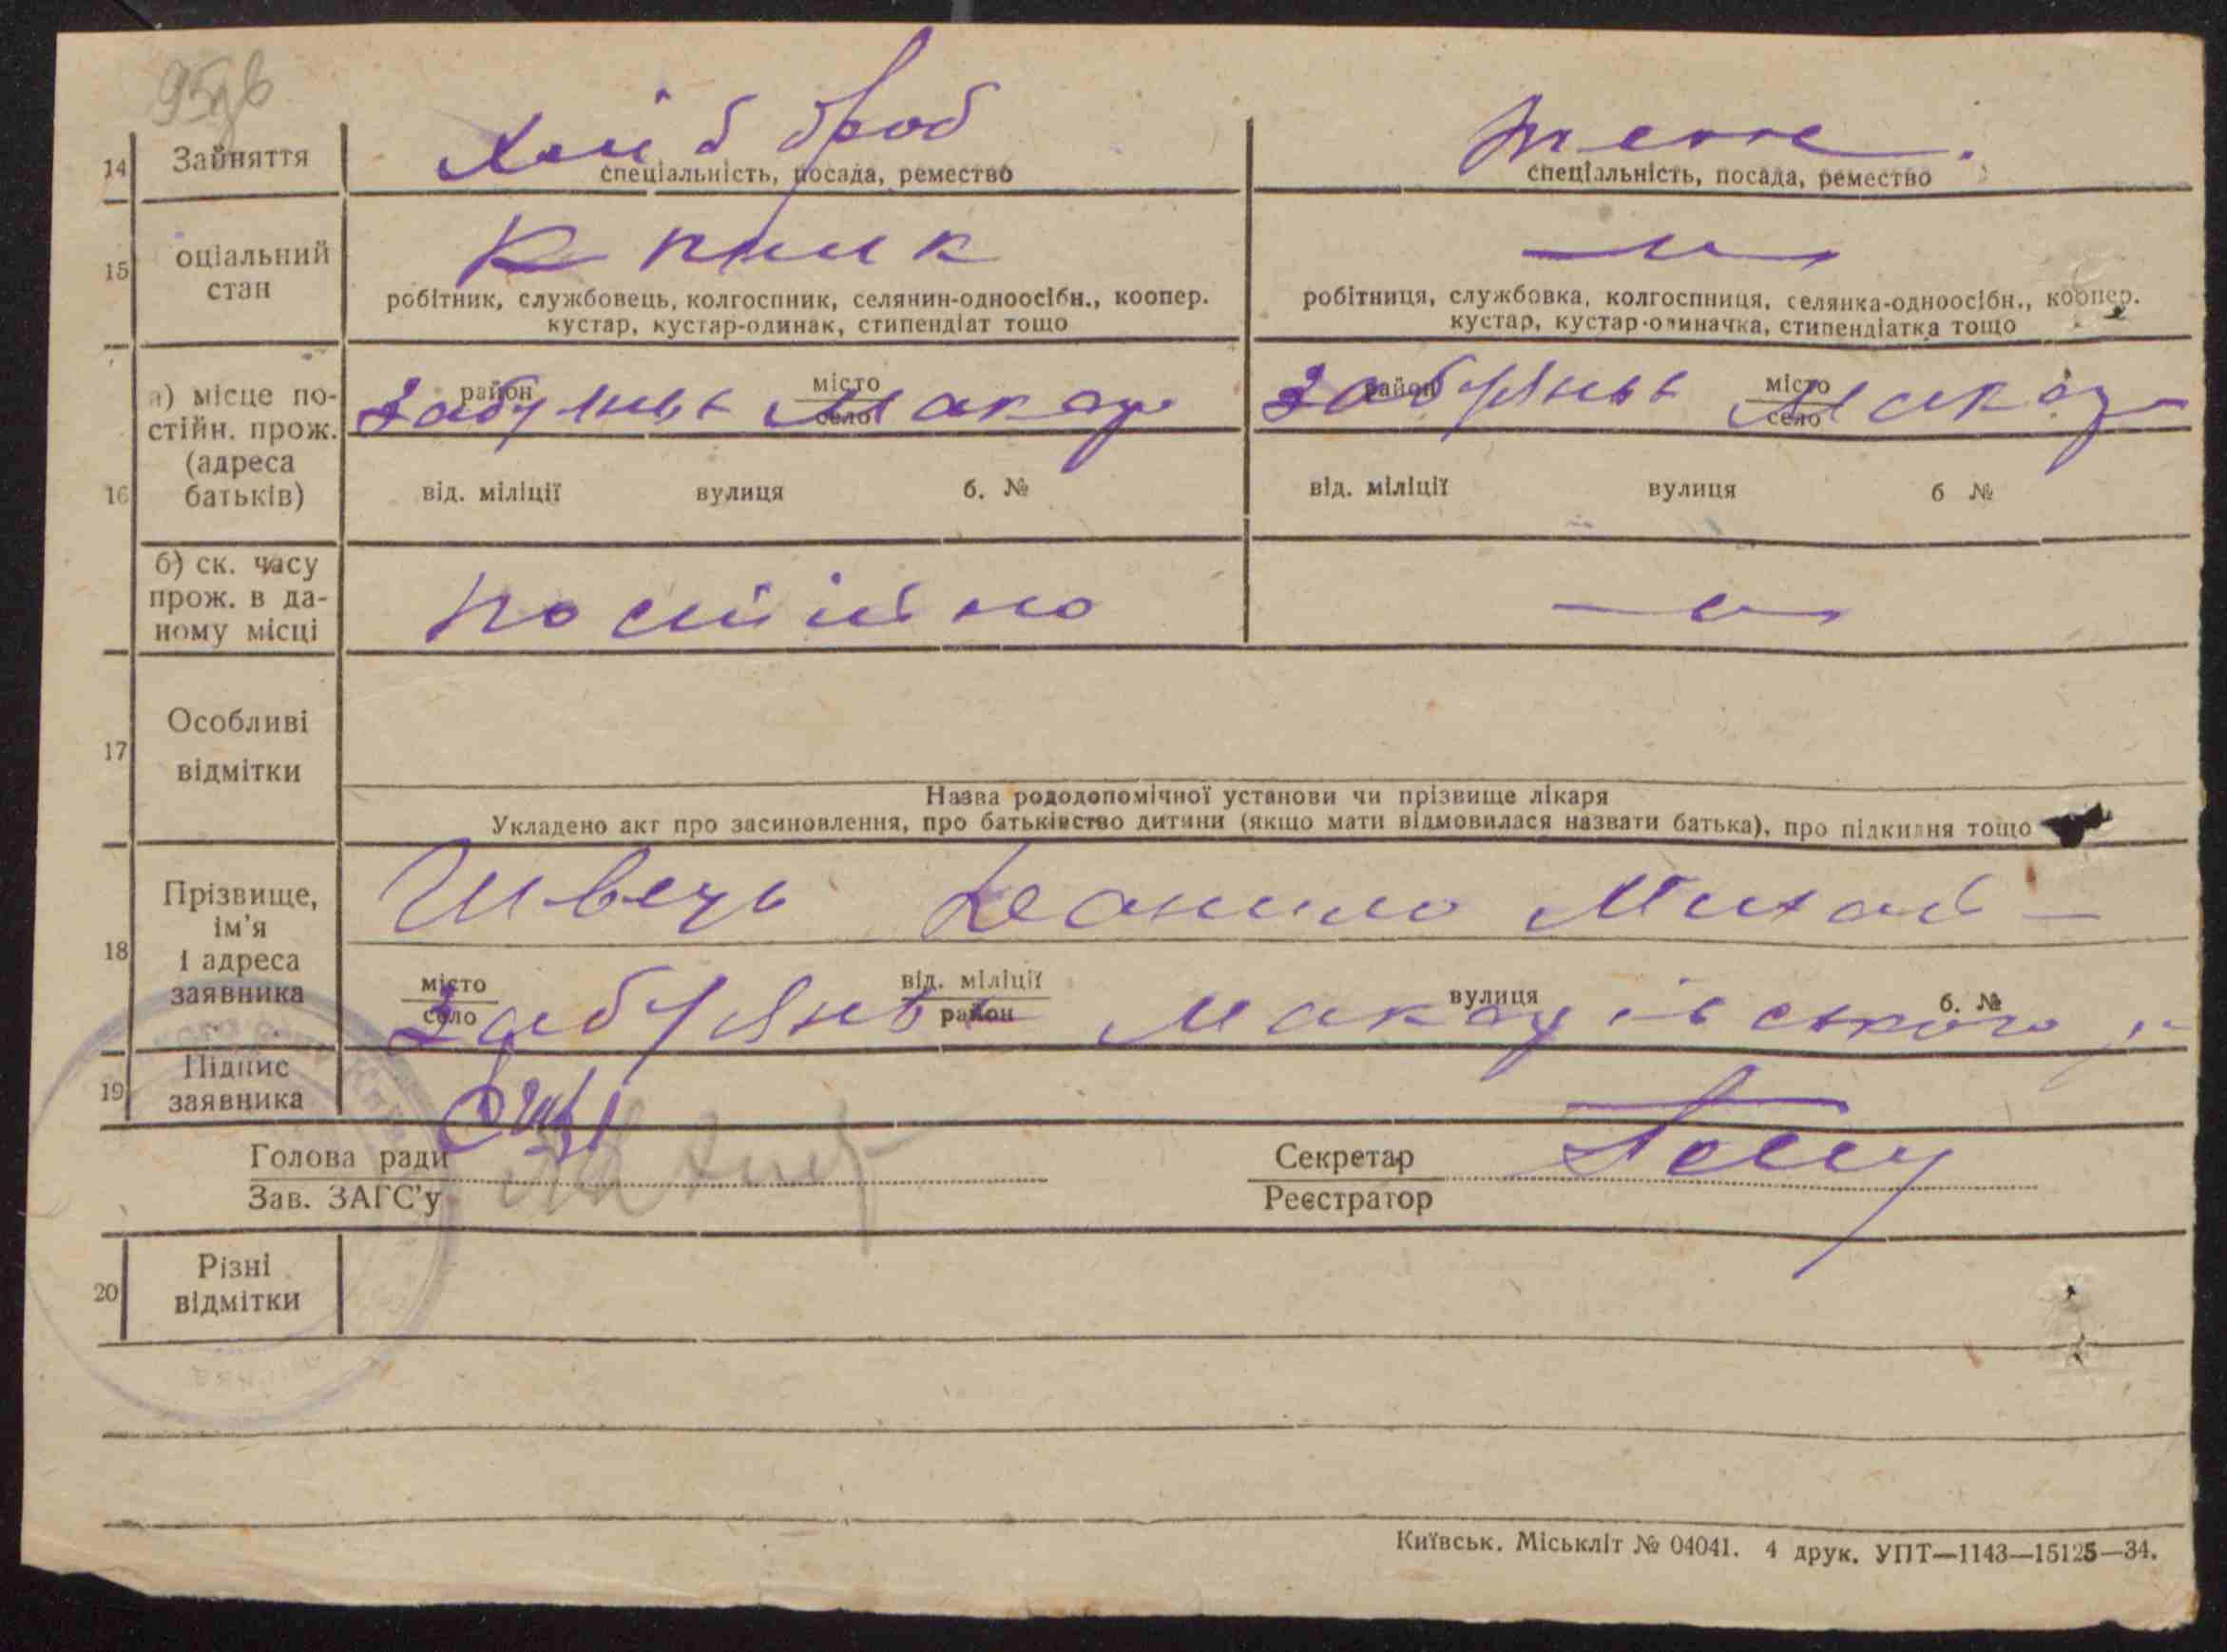 95зв
14 Зайняття Хлібороб теж.
спеціальність, посада, ремество спеціальність, посада, ремество
15 оціальний стан К пник —"—
робітник, службовець, колгоспник, селянин-одноосібн., коопер. робітниця, службовка, колгоспниця, селянка-одноосібн., коопер.
кустар, кустар-одинак, стипендіат тощо кустар, кустар-одиначка, стипендіатка тощо
16 а) місце по-
стійн. прож.
(адреса
батьків)
район місто село район місто село
Забуяння Макар Забуяння Макар
від. міліції вулиця б. № від. міліції вулиця б №
б) ск. часу
прож. в да-
ному місці
постійно —"—
17 Особливі
відмітки
Назва рододопомічної установи чи прізвище лікаря
Укладено акт про засиновлення, про батьківство дитини (якщо мати відмовилася назвати батька), про підкидня тощо
18 Прізвище,
ім'я
і адреса
заявника
Швець Данило Михай
місто село від. міліції район вулиця б. №
Забуяння Макарівського р
19 Підпис
заявника
Голова ради Секретар
Зав. ЗАГС'у Реєстратор
20 Різні
відмітки
Київськ. Міськліт № 04041. 4 друк. УПТ—1143—15125—34.